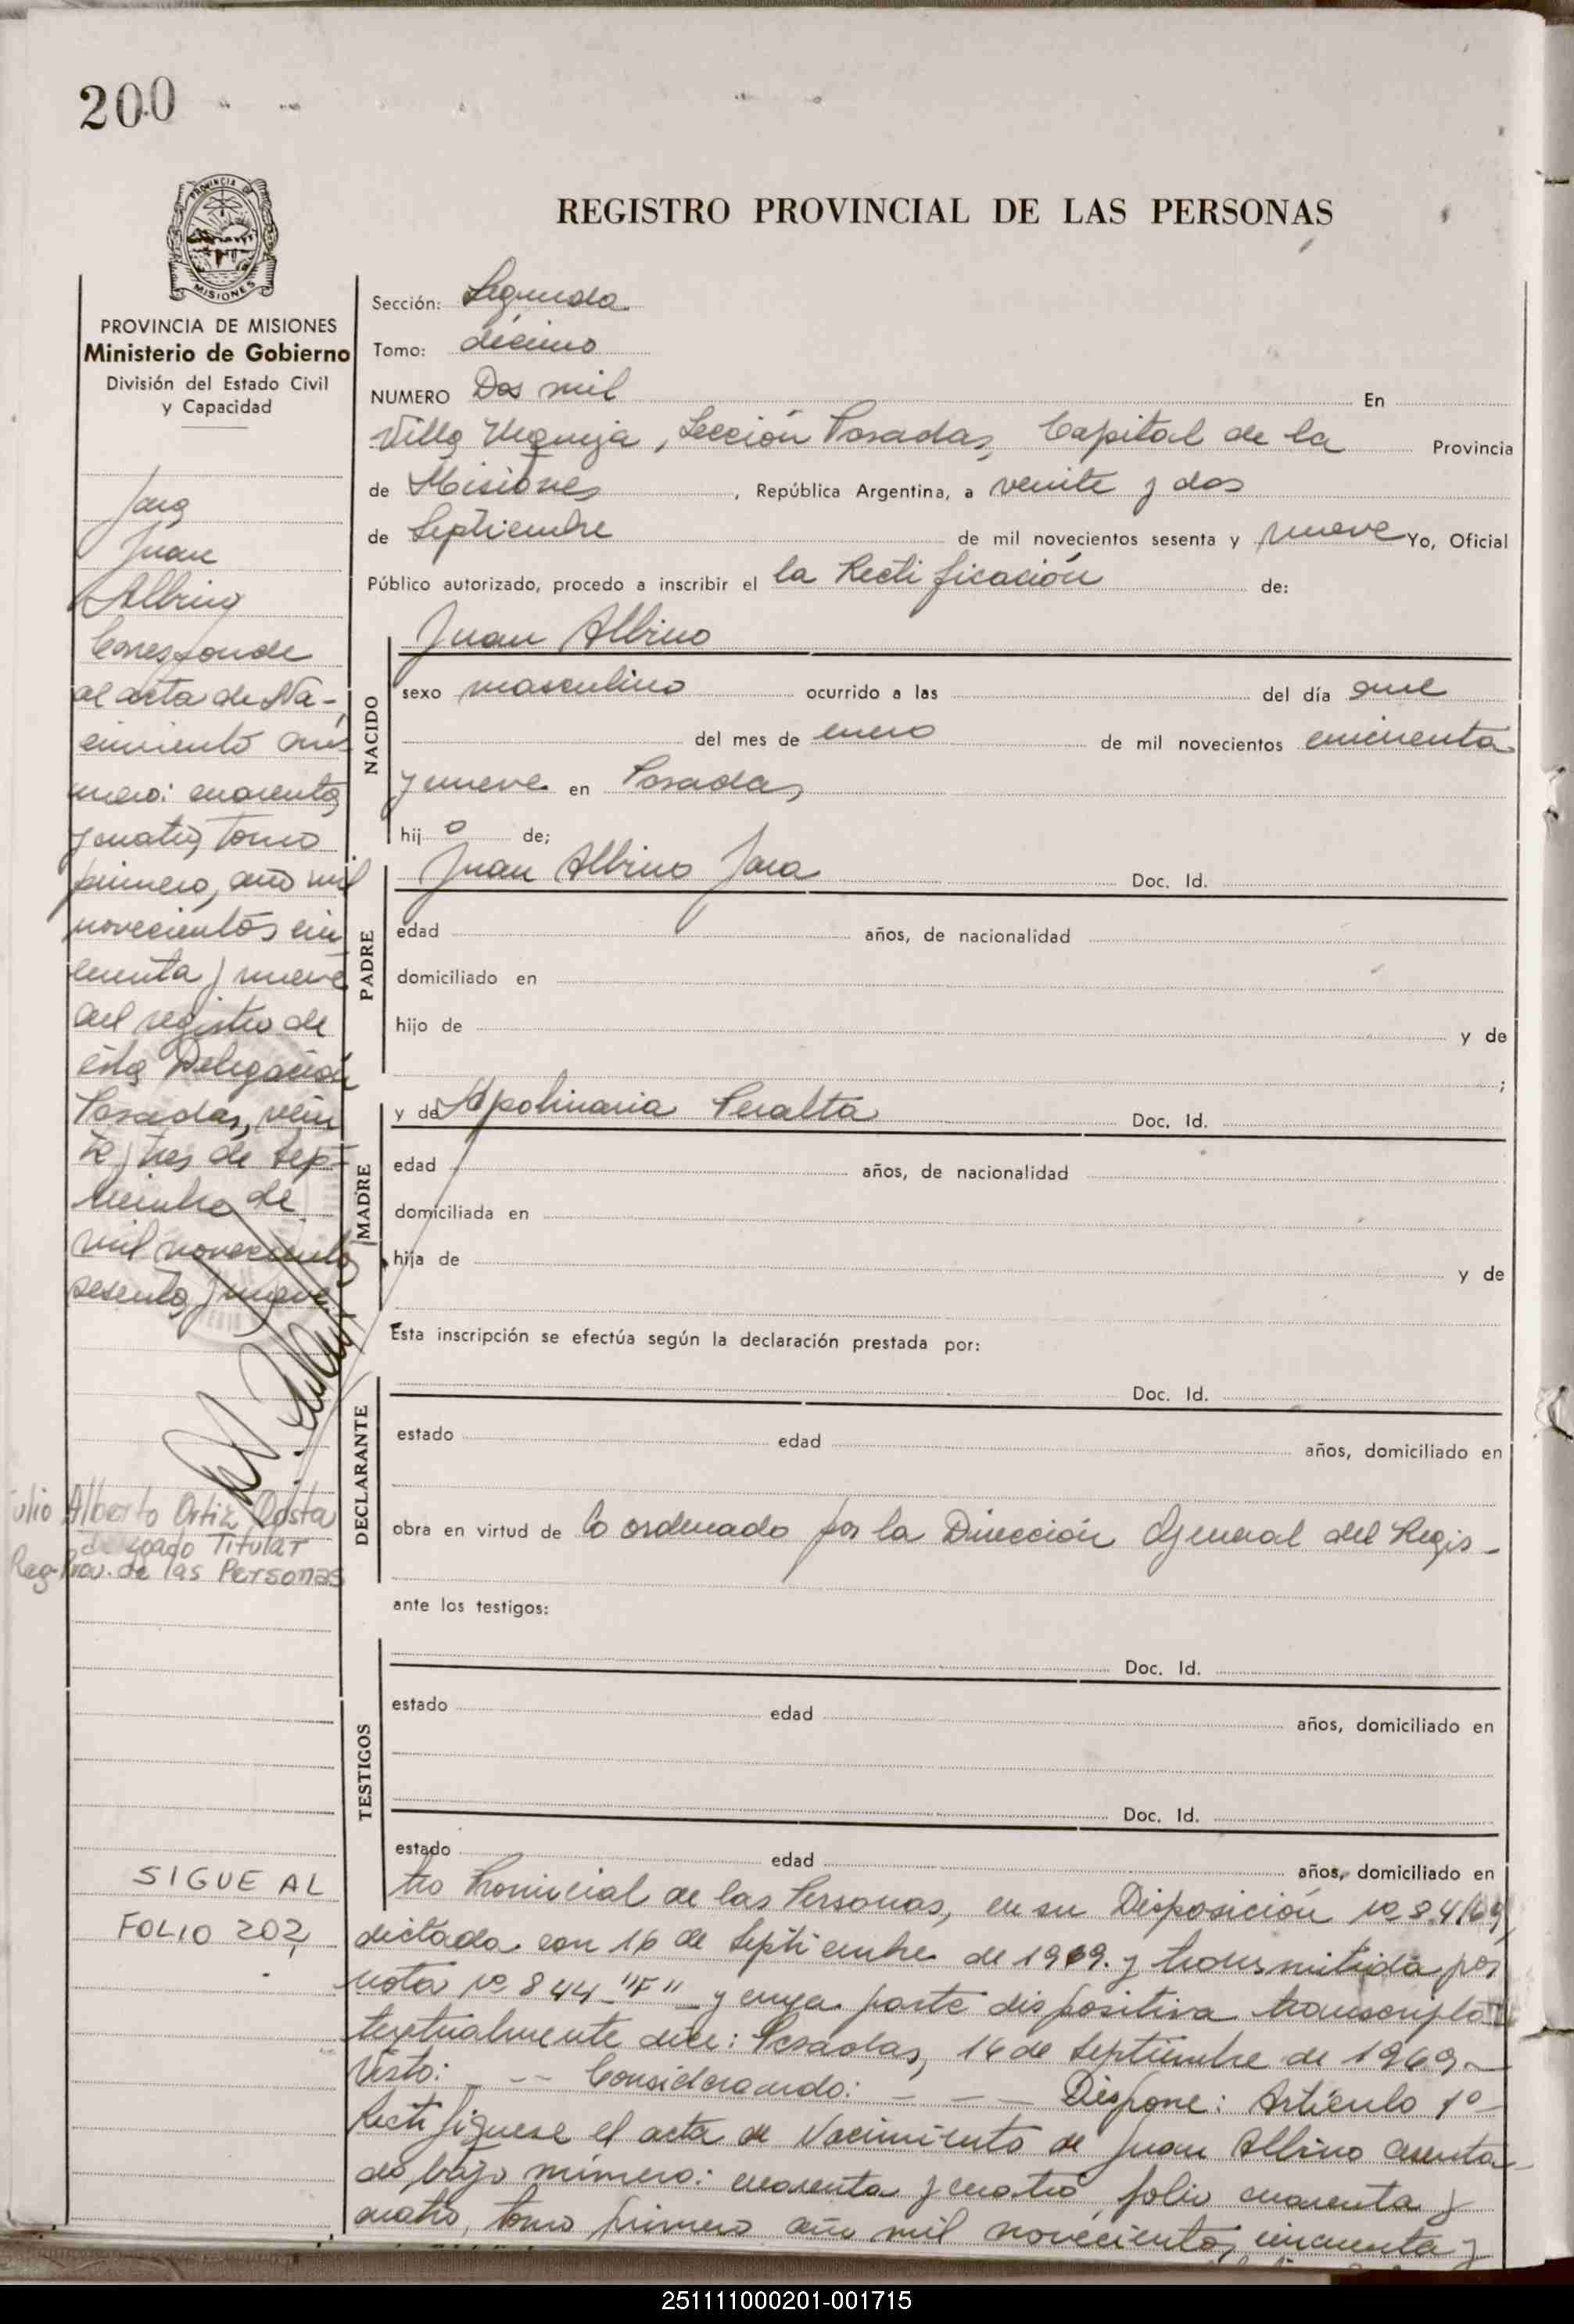 200
PROVINCIA DE
MISIONES
REGISTRO PROVINCIAL DE LAS PERSONAS
PROVINCIA DE MISIONES
Ministerio de Gobierno
División del Estado Civil
y Capacidad
Jara
Juan
Albino
Corresponde
al acta de Na-
cimiento nú
mero: cuarenta
y cuatro, tomo
primero, año mil
novecientos cin
cuenta y nueve
del registro de
esta Delegación
Posadas, vein
te y tres de sep-
tiembre de
mil novecientos
sesenta y nueve
Julio Alberto Ortiz Costa
Delegado Titular
Reg. Prov. de las Personas
SIGUE AL
FOLIO 202
Sección: Segunda
Tomo: décimo
NUMERO Dos mil En
Villa Urquiza, Sección Posadas, Capital de la Provincia
de Misiones, República Argentina, a veinte y dos
de Septiembre de mil novecientos sesenta y nueve Yo, Oficial
Público autorizado, procedo a inscribir el la Rectificación de:
NACIDO
Juan Albino
sexo masculino ocurrido a las del día once
del mes de enero de mil novecientos cincuenta
y nueve en Posadas
hij o de;
PADRE
Juan Albino Jara Doc. Id.
edad años, de nacionalidad
domiciliado en
hijo de y de
;
MADRE
y de Apolinaria Peralta Doc. Id.
edad años, de nacionalidad
domiciliada en
hija de y de
Esta inscripción se efectúa según la declaración prestada por:
DECLARANTE
Doc. Id.
estado edad años, domiciliado en
obra en virtud de lo ordenado por la Dirección General del Regis-
ante los testigos:
TESTIGOS
Doc. Id.
estado edad años, domiciliado en
Doc. Id.
estado edad años, domiciliado en
tro Provincial de las Personas, en su Disposición nº 84/69,
dictada con 16 de Septiembre de 1969. y transmitida por
nota nº 844-"F"- y cuya parte dispositiva transcripta
textualmente dice: Posadas, 16 de Septiembre de 1969.-
Visto: - -- Considerando: - - - Dispone: Artículo 1º-
Rectifíquese el acta de Nacimiento de Juan Albino asenta-
do bajo número: cuarenta y cuatro, folio cuarenta y
cuatro, tomo primero año mil novecientos cincuenta y
251111000201-001715